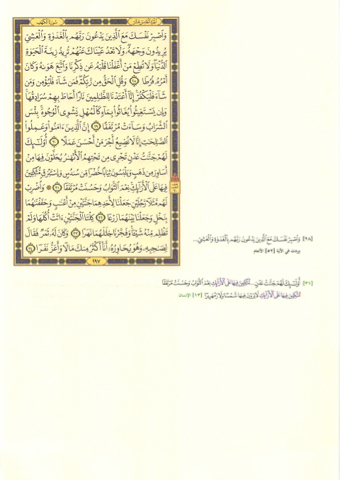 سورة الكهف
وَاصْبِرْ نَفْسَكَ مَعَ الَّذِينَ يَدْعُونَ رَبَّهُم بِالْغَدَوٰةِ وَالْعَشِيِّ
يُرِيدُونَ وَجْهَهُۥ وَلَا تَعْدُ عَيْنَاكَ عَنْهُمْ تُرِيدُ زِينَةَ الْحَيَوٰةِ
الدُّنْيَا وَلَا تُطِعْ مَنْ أَغْفَلْنَا قَلْبَهُۥ عَن ذِكْرِنَا وَاتَّبَعَ هَوَىٰهُ وَكَانَ
أَمْرُهُۥ فُرُطًا ٢٨ وَقُلِ الْحَقُّ مِن رَّبِّكُمْ فَمَن شَاءَ فَلْيُؤْمِن وَمَن
شَاءَ فَلْيَكْفُرْ إِنَّا أَعْتَدْنَا لِلظَّٰلِمِينَ نَارًا أَحَاطَ بِهِمْ سُرَادِقُهَا
وَإِن يَسْتَغِيثُوا يُغَاثُوا بِمَاءٍ كَالْمُهْلِ يَشْوِي الْوُجُوهَ بِئْسَ
الشَّرَابُ وَسَاءَتْ مُرْتَفَقًا ٢٩ إِنَّ الَّذِينَ ءَامَنُوا وَعَمِلُوا
الصَّٰلِحَٰتِ إِنَّا لَا نُضِيعُ أَجْرَ مَنْ أَحْسَنَ عَمَلًا ٣٠ أُولَٰئِكَ
لَهُمْ جَنَّٰتُ عَدْنٍ تَجْرِي مِن تَحْتِهِمُ الْأَنْهَٰرُ يُحَلَّوْنَ فِيهَا مِنْ
أَسَاوِرَ مِن ذَهَبٍ وَيَلْبَسُونَ ثِيَابًا خُضْرًا مِّن سُندُسٍ وَإِسْتَبْرَقٍ مُّتَّكِـِٔينَ
فِيهَا عَلَى الْأَرَائِكِ نِعْمَ الثَّوَابُ وَحَسُنَتْ مُرْتَفَقًا ٣١ ۞ وَاضْرِبْ
لَهُم مَّثَلًا رَّجُلَيْنِ جَعَلْنَا لِأَحَدِهِمَا جَنَّتَيْنِ مِنْ أَعْنَٰبٍ وَحَفَفْنَٰهُمَا
بِنَخْلٍ وَجَعَلْنَا بَيْنَهُمَا زَرْعًا ٣٢ كِلْتَا الْجَنَّتَيْنِ ءَاتَتْ أُكُلَهَا وَلَمْ
تَظْلِم مِّنْهُ شَيْـًٔا وَفَجَّرْنَا خِلَٰلَهُمَا نَهَرًا ٣٣ وَكَانَ لَهُۥ ثَمَرٌ فَقَالَ
لِصَٰحِبِهِۦ وَهُوَ يُحَاوِرُهُۥ أَنَا أَكْثَرُ مِنكَ مَالًا وَأَعَزُّ نَفَرًا ٣٤
[٢٨] وَاصْبِرْ نَفْسَكَ مَعَ الَّذِينَ يَدْعُونَ رَبَّهُم بِالْغَدَوٰةِ وَالْعَشِيِّ...
في الآية [٥٢] الأنعام
[٣١] أُولَٰئِكَ لَهُمْ جَنَّٰتُ عَدْنٍ ... مُّتَّكِـِٔينَ فِيهَا عَلَى الْأَرَائِكِ نِعْمَ الثَّوَابُ وَحَسُنَتْ مُرْتَفَقًا
مُّتَّكِـِٔينَ فِيهَا عَلَى الْأَرَائِكِ لَا يَرَوْنَ فِيهَا شَمْسًا وَلَا زَمْهَرِيرًا [١٣] الإنسان